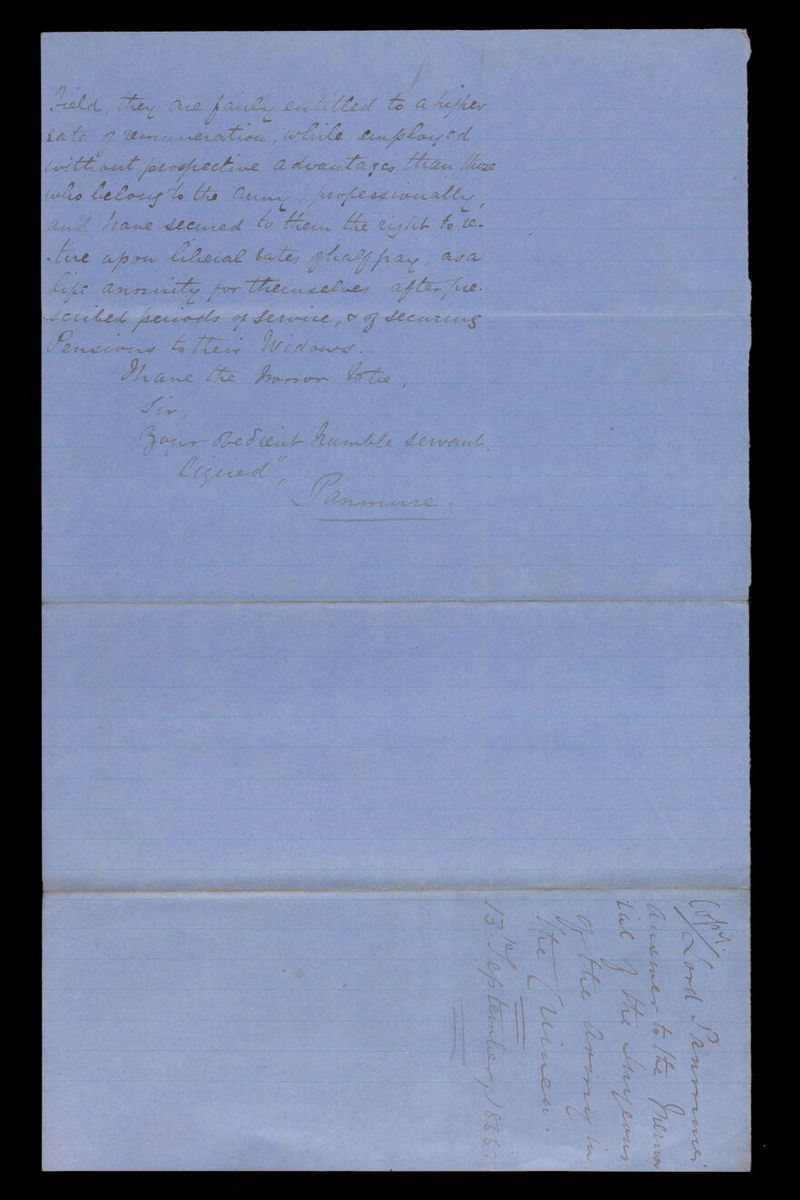 Field, they are fairly entitled to a higher
rate of remuneration, while employed
without prospective advantages, than those
who belong to the Army, professionally,
and have secured to them the right to re-
-tire upon liberal rates of half pay, as a
life annuity for themselves after pre-
-scribed periods of service, & of securing
Pensions to their Widows.
I have the honor to be,
Sir,
Your obedient humble servant.
Signed",
Panmure.
Copy/ Lord Panmure's
answer to the Memor
ial of the Surgeons
of the Army in
the Crimea.
13 September, 1855.